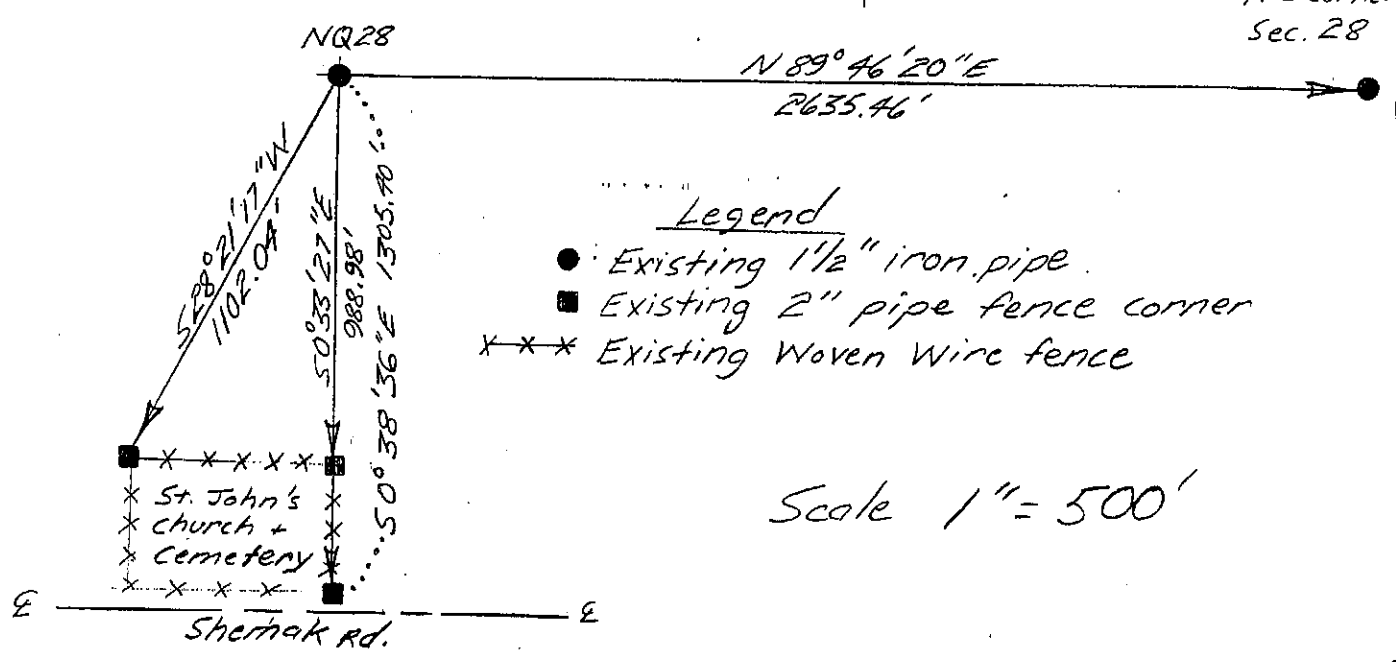 Sec. 28
NQ28
N 89° 46' 20" E
2635.46'
S 28° 21' 17" W
1102.04'
S 0° 33' 27" E
988.98'
S 0° 38' 36" E 1305.40'
Legend
Existing 1 1/2" iron pipe
Existing 2" pipe fence corner
x x x Existing Woven Wire fence
St. John's
church +
Cemetery
Scale 1" = 500'
℄ ℄
Shemak Rd.